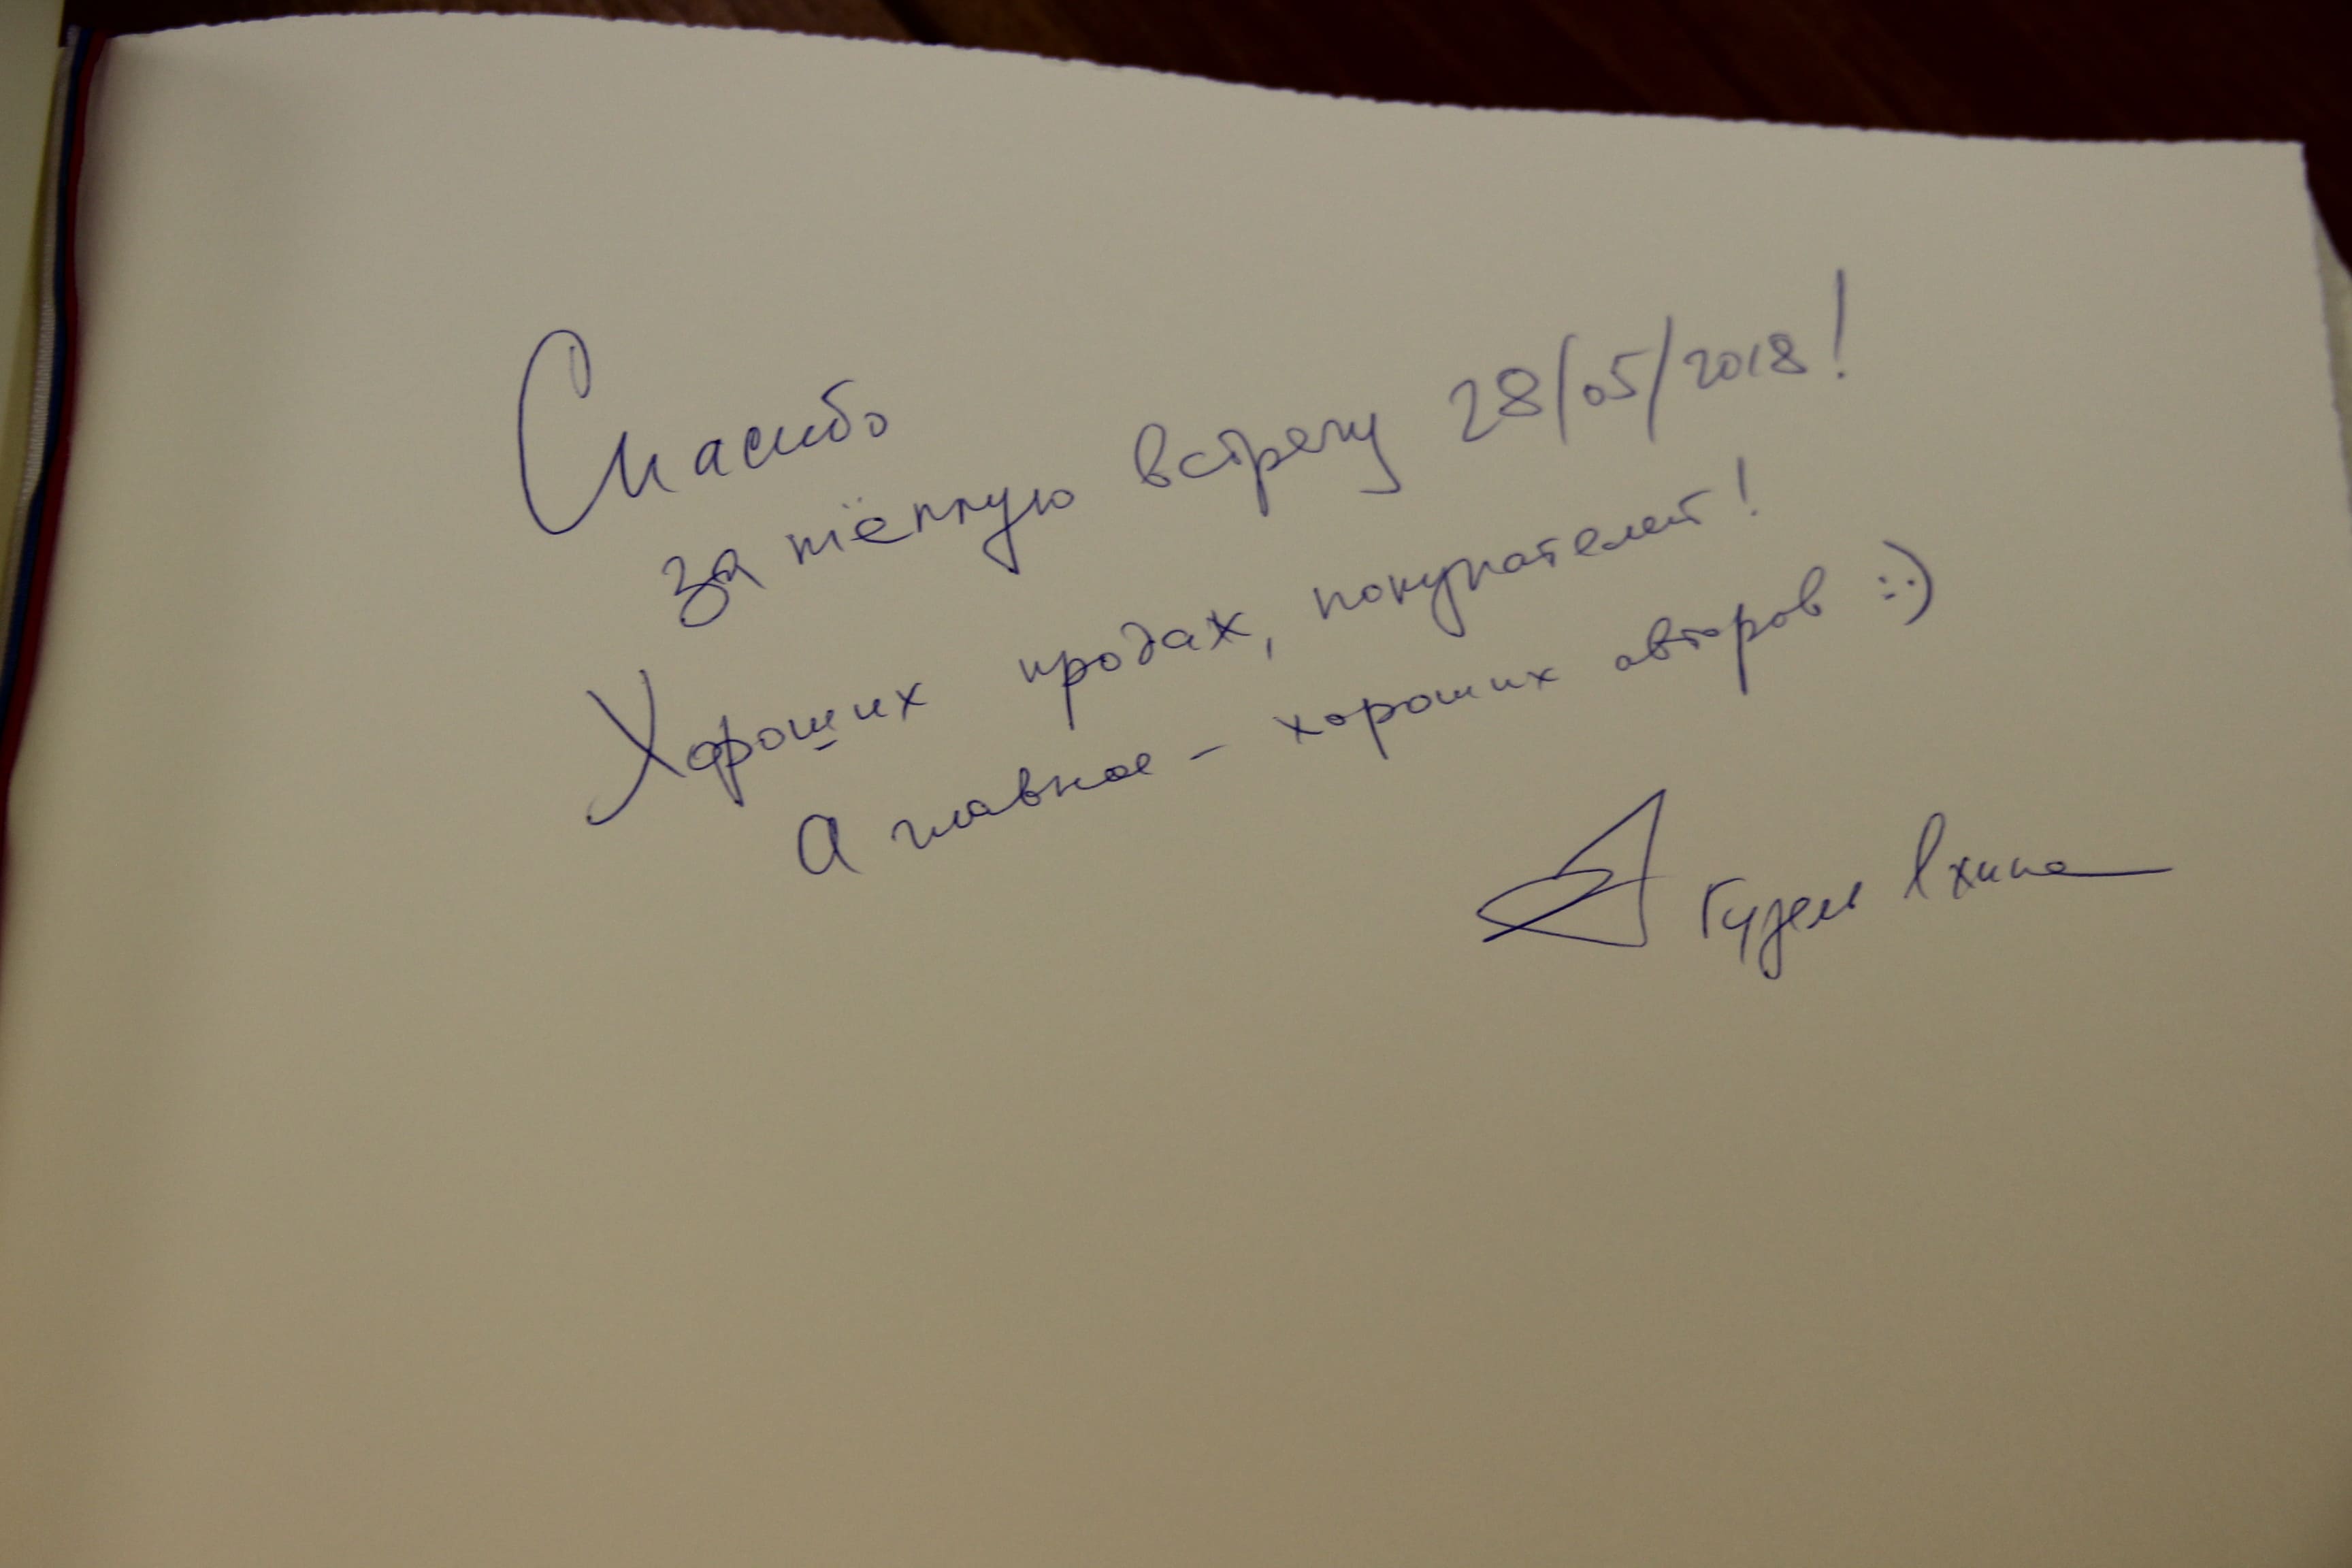 Спасибо
за тёплую встречу 28/05/2018!
Хороших продаж, покупателей!
А главное – хороших авторов :-)
Гузель Яхина